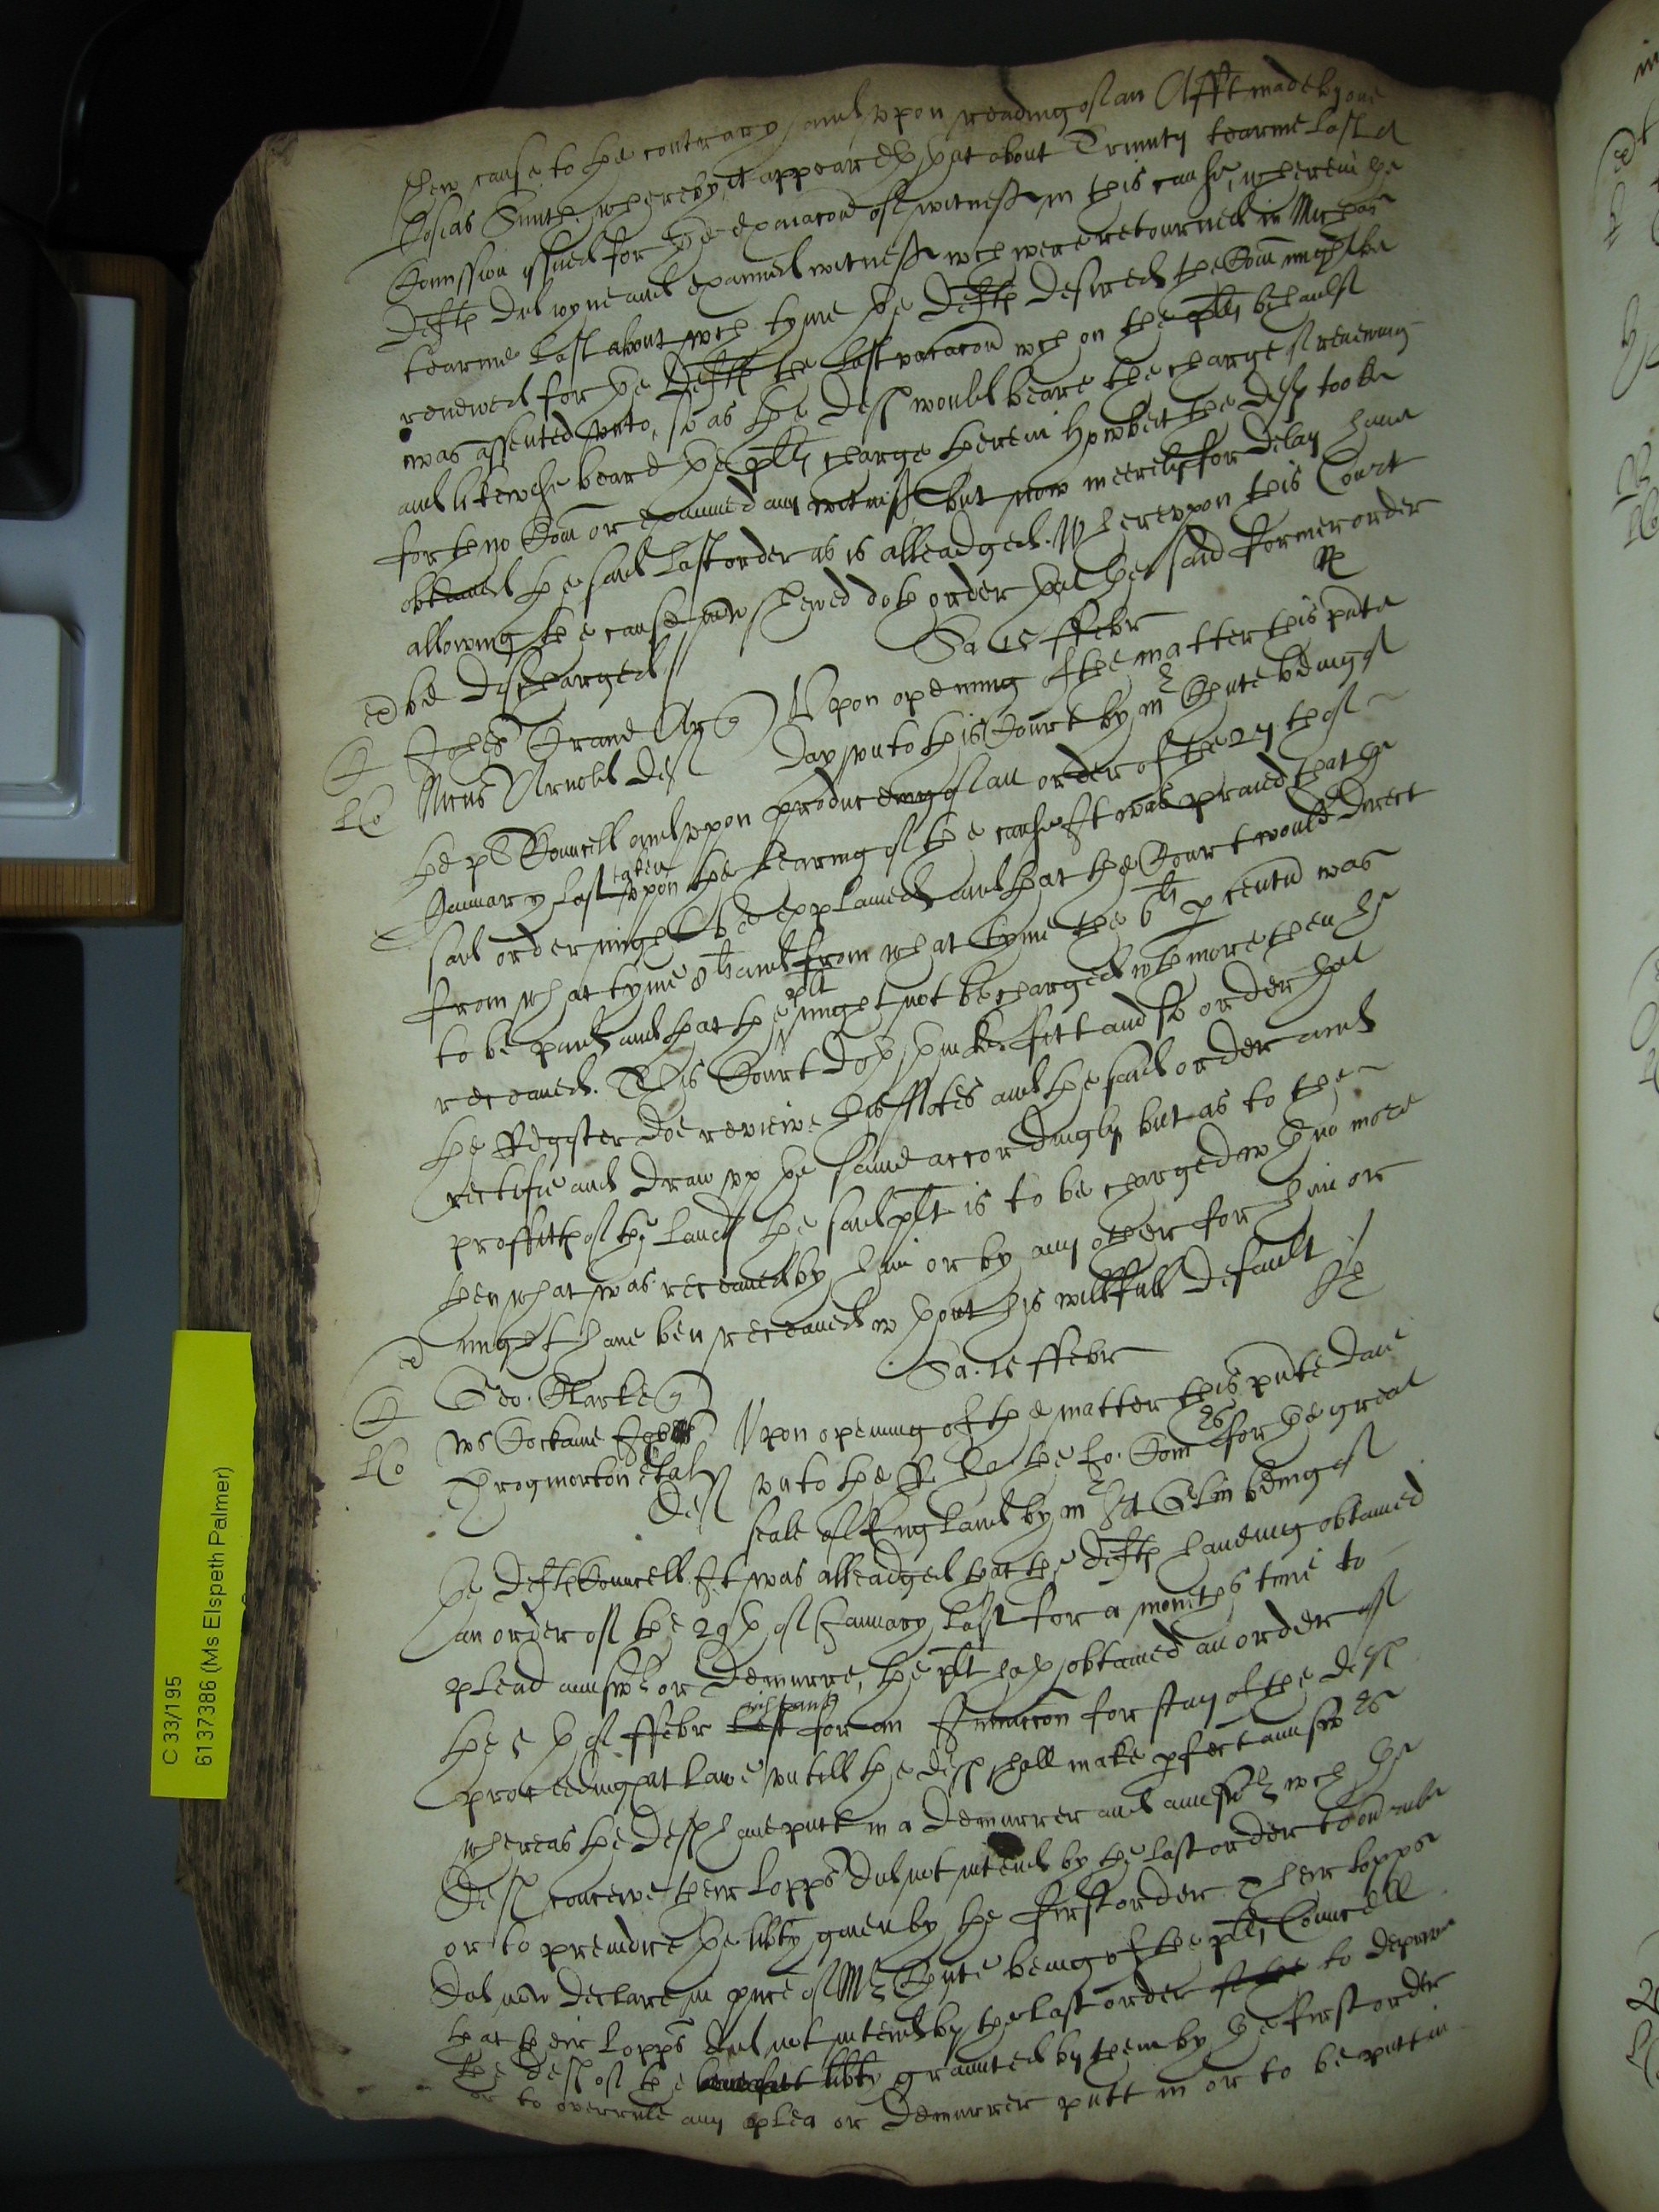 shew cause to the contrary, and upon reading of an Afft made by one
Josias Smith whereby it appeareth that about Trinity tearme last a
Comission issued for the exaiacon of witnesses in this cause, wherein the
Defts did ioyne and examined witnesses wch were retourned in Michas
tearme last about wch tyme the Defts desired the Com might be
renewed for the Defts the last vacacon wch on the plts behalfe
was assented unto, so as the Deft would beare the charge of renewing
and likewise beare the plts charge therein Howbeit the Deft tooke
forth no Com or examined any witness but now meerely for delay have
obtained the said last order as is alleadged. Whereupon this Court
allowing the cause now shewed doth order that the said former order
be discharged //
Sa 15 ffebr
Johes Brand Ar
Nicus Arnold Deft
Upon opening of the matter this pnte
day unto this Court by mr Chute being of
the pl Councell and upon producing of an order of the 27 th of
January last upon the hearing of the cause It was praied that the
said order might be explained and that the Court would direct
from what tyme 8 li and from what tyme the 6 li p centu was
to be paid and that the plt might not be charged wth more then he
receaved. This Court doth thinke fitt and so order that
the Register doe reveiwe his Notes and the said order and
rectifie and draw up the same accordingly but as to the
proffitts of the lands the said plt is to be charged wth no more
then what was receaved by him or by any other for him or
might have ben receaved wthout his willfull default /
Sa. 15 ffebr
Geo: Clarke
Ws Cockaine
Throgmorton et al
Deft
Upon opening of the matter this pnte daie
unto the R Ho: the Lo: Comrs for the great
seale of England by mr being of
the Defts Councell. It was alleadged that the Defts haveing obtained
an order of the 29 th of January last for a moneths time to
plead aunswr or demurre, the plt hath obtained an order of
the 5 th of ffebr instant for an Iniuncon for stay of the Deft
proceedings at Lawe untill the Deft shall make pfect aunswrs
whereas the Deft have putt in a Demurrer and aunswr wch the
Deft conceive their Lopps did not intend by the last order to overrule
or to preiudice the libty given by the first order Their Lopps
did now declare in pnce of Mr Chute being of the plts Councell
that their Lopps did not intend by the last order to deprive
the Deft of the libty graunted by them by the first order
or to overrule any plea or Demurrer putt in or to be putt in
C 33/195
6137386 (Ms Elspeth Palmer)